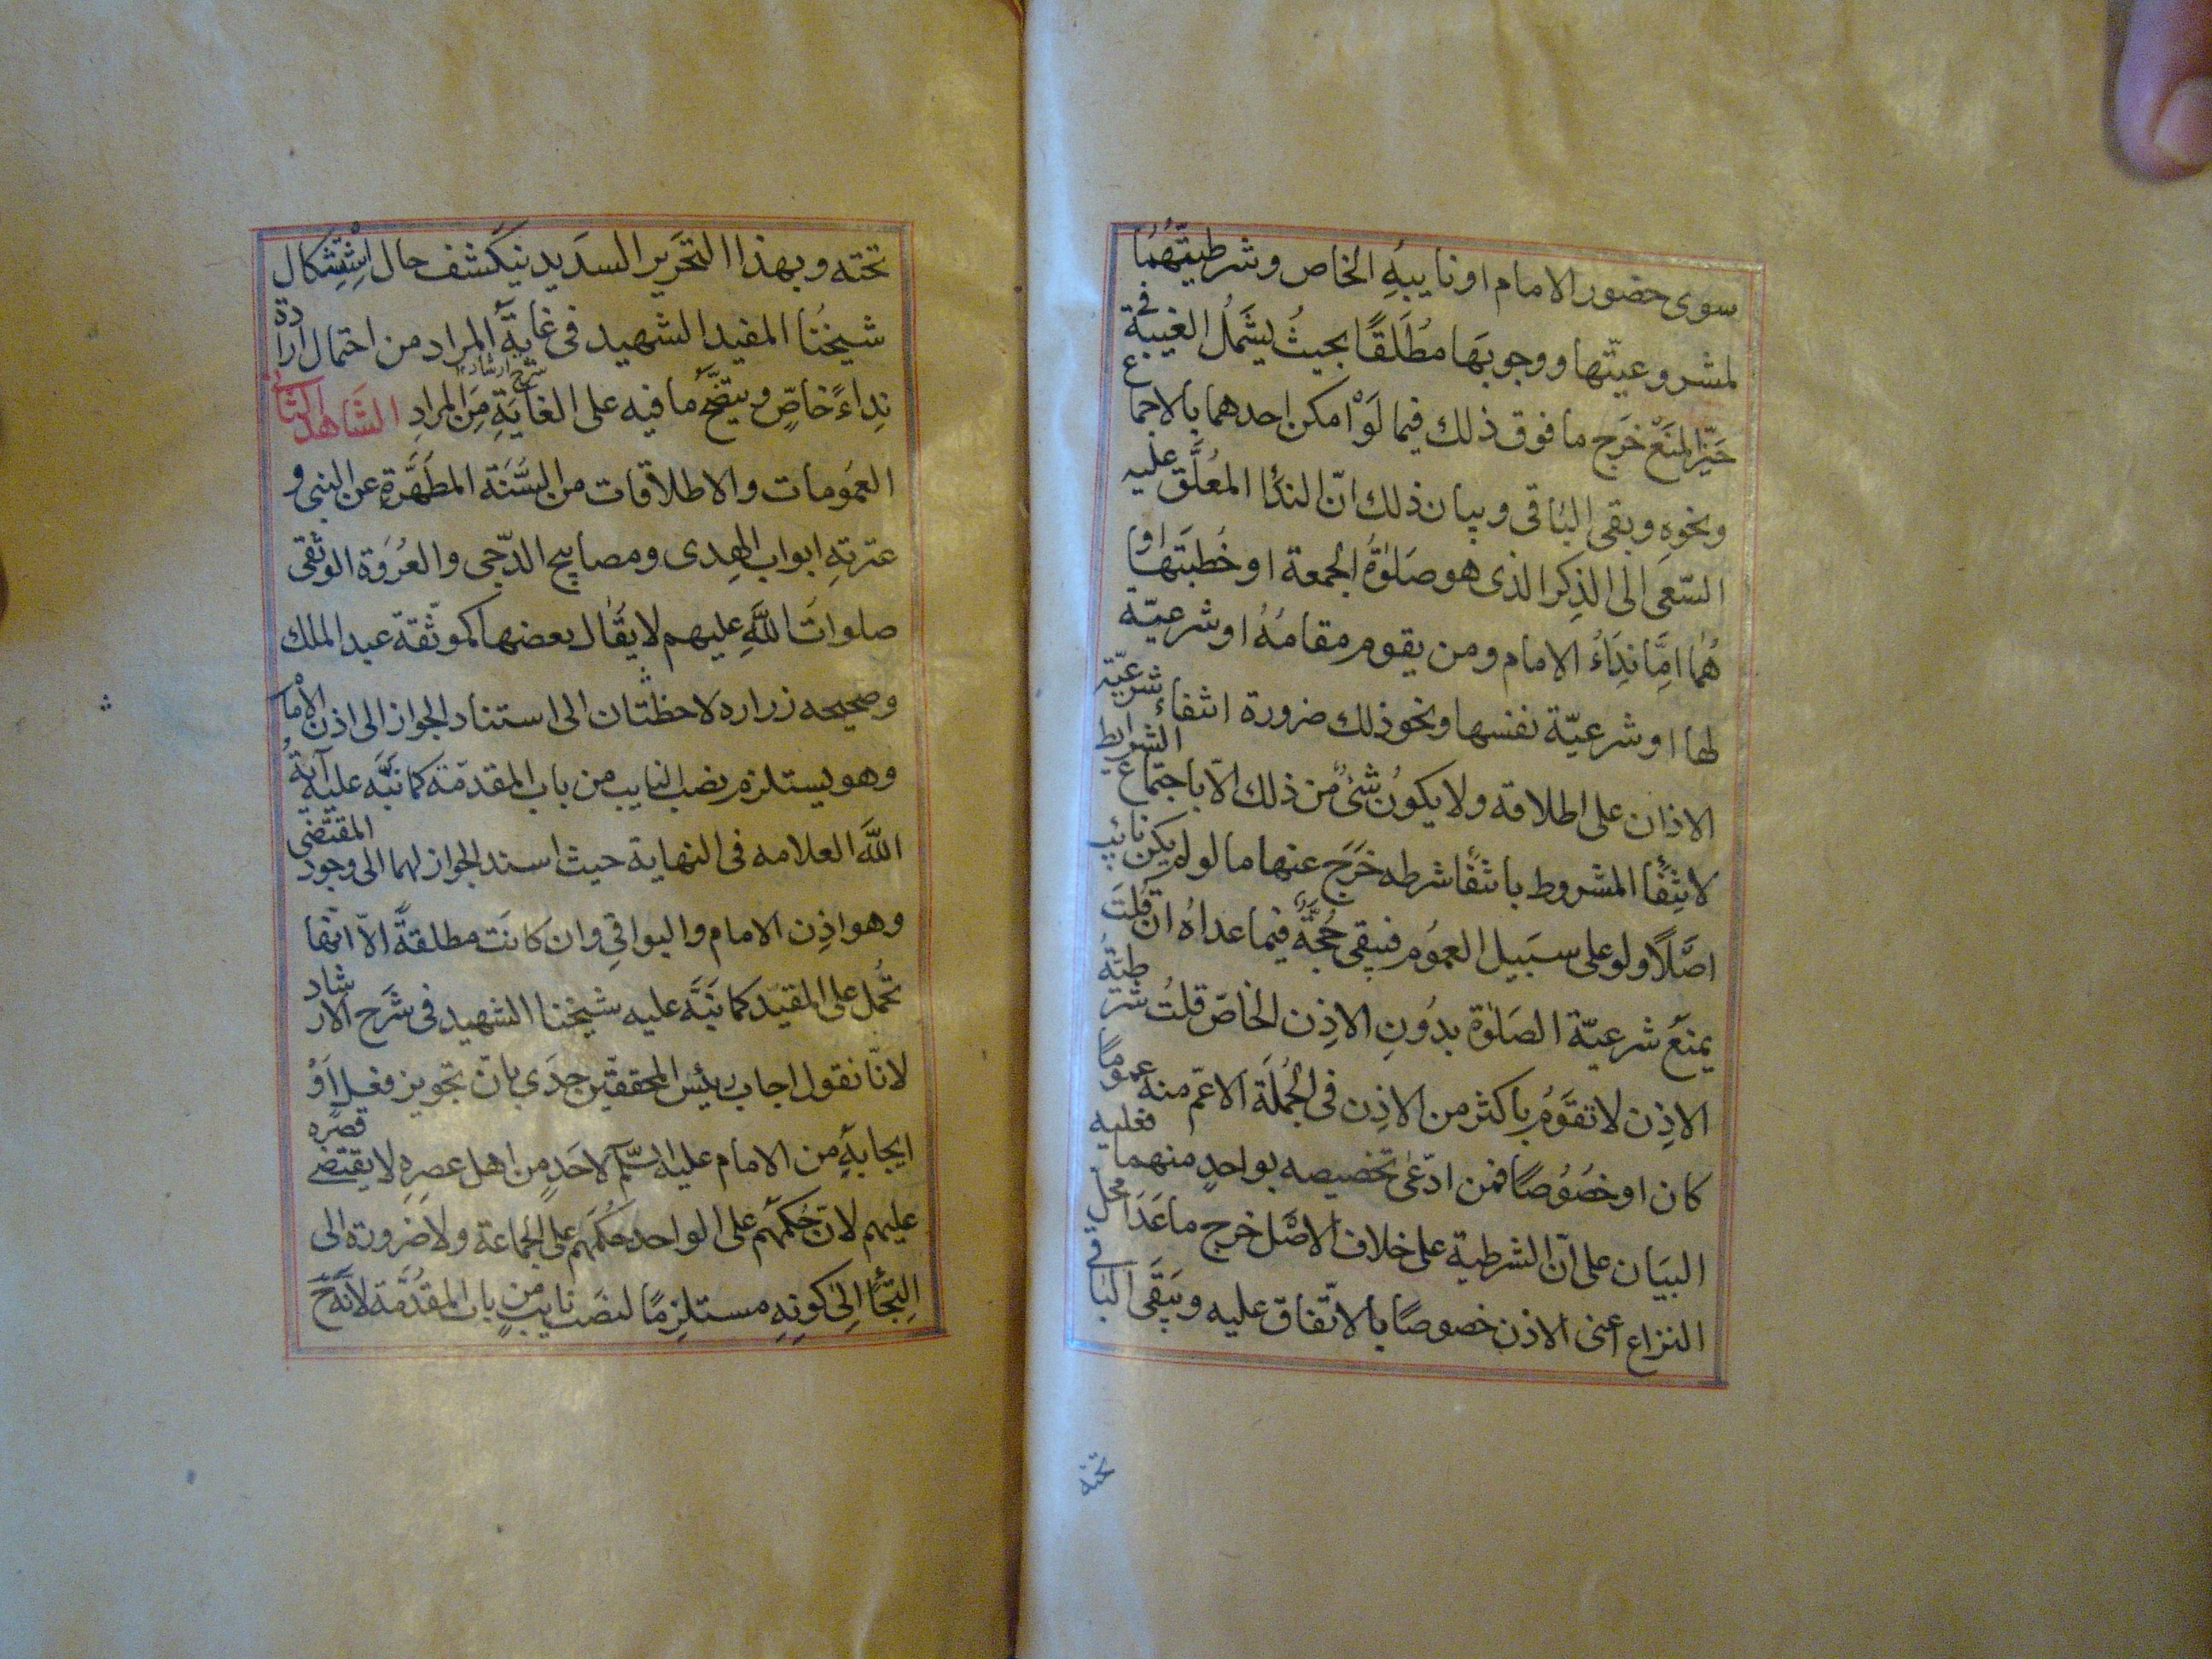 سوى حضور الامام او نايبهِ الخاص وشرطيتهما
لمشروعيتها ووجوبها مطلقًا بحيثُ يشملُ الغيبة في
حيّز المنع خرج ما فوق ذلك فيما لَوْ امكن احدهما بالاجماع
ونحوهِ وبقى الباقى وبيان ذلك انّ الندا المعُلَّق عليه
السّعى الى الذِكر الذى هو صَلوٰةُ الجمعة او خُطبَتها او
هُما امَّا نِدَاءُ الامام ومن يقوم مقامهُ او شرعيّة
لها او شرعيّة نفسها ونحو ذلك ضرورة انتفاء شرعيّة
الاذان على اطلاقه ولا يكونُ شئٌ من ذلك الّا باجتماع الشرايط
لانتفا المشروط بانتفا شرطه خَرَج عنها ما لو لم يكن نائب
اصلًا ولو على سبيل العموُم فيبقى حُجّةً فيما عداهُ ان قلتَ
يمنع شرعيّة الصَلوٰة بدُونِ الاذِن الخاصّ قلتُ شرطيّةُ
الاذِن لا تقوَّمُ باكثر من الاذِن فى الجُملَة الاعمّ منه عمومًا
كان او خصُوُصًا فمن ادّعى تخصيصه بواحدٍ منهما فعليه
البيَان على انّ الشرطية على خلاف الاصَل خرج ما عَدَا محل
النزاع اعنى الاذن خصوصًا بالاتّفاق عليه ويَبقَى الباقى
تحته
تحته وبهذا التحرير السدَيد ينكشف حال اِسْتِشكال
شيخُنا المفيد الشهيد فى غايةَ المراد من احتمال ارادة
شرح ارشاد
نِداءً خاصٍّ ويتضّح ما فيه على الغايَةِ مِنَ المرادِ الشَاهد الثانى
العمُومات والاطلاقات من السُّنَة المطَهَّرةِ عن النبى و
عترتهِ ابواب الهِدى ومصابيح الدّجى والعُروَة الوثقى
صلواتُ اللَّهِ عليهم لا يقَال بعضها كموثّقة عبد الملك
وصحيحه زراره لاحظتان الى استناد الجواز الى اذن الامام
وهو يستلزم نصب النايب من باب المقدمّة كما نبَّه عليه آيةُ
اللَّه العلامه فى النهاية حيث اسند الجواز لهما الى وجود المقتضى
وهو اذِن الامام والبواقِى وان كانَت مطلقةً الّا انّها
تُحمل على المقيّد كما نبَّه عليه شيخنا الشهيد فى شَرح الارشاد
لانّا نقول اجاب رئيس المحققيّن جدّي بان تجويز فعل اَوْ
ايجابهٍ من الامام عليه السّلم لاحَدٍ من اهل عصرِهِ لا يقتضى قصره
عليهم لانّ حُكمهُم على الواحد حُكمَهم على الجماعة ولا ضرورة الى
اِلتجأ اِلىٰ كونِهِ مستلزِمًا لنصَب نايبٍ من باب المقدّمَة لانّه ح